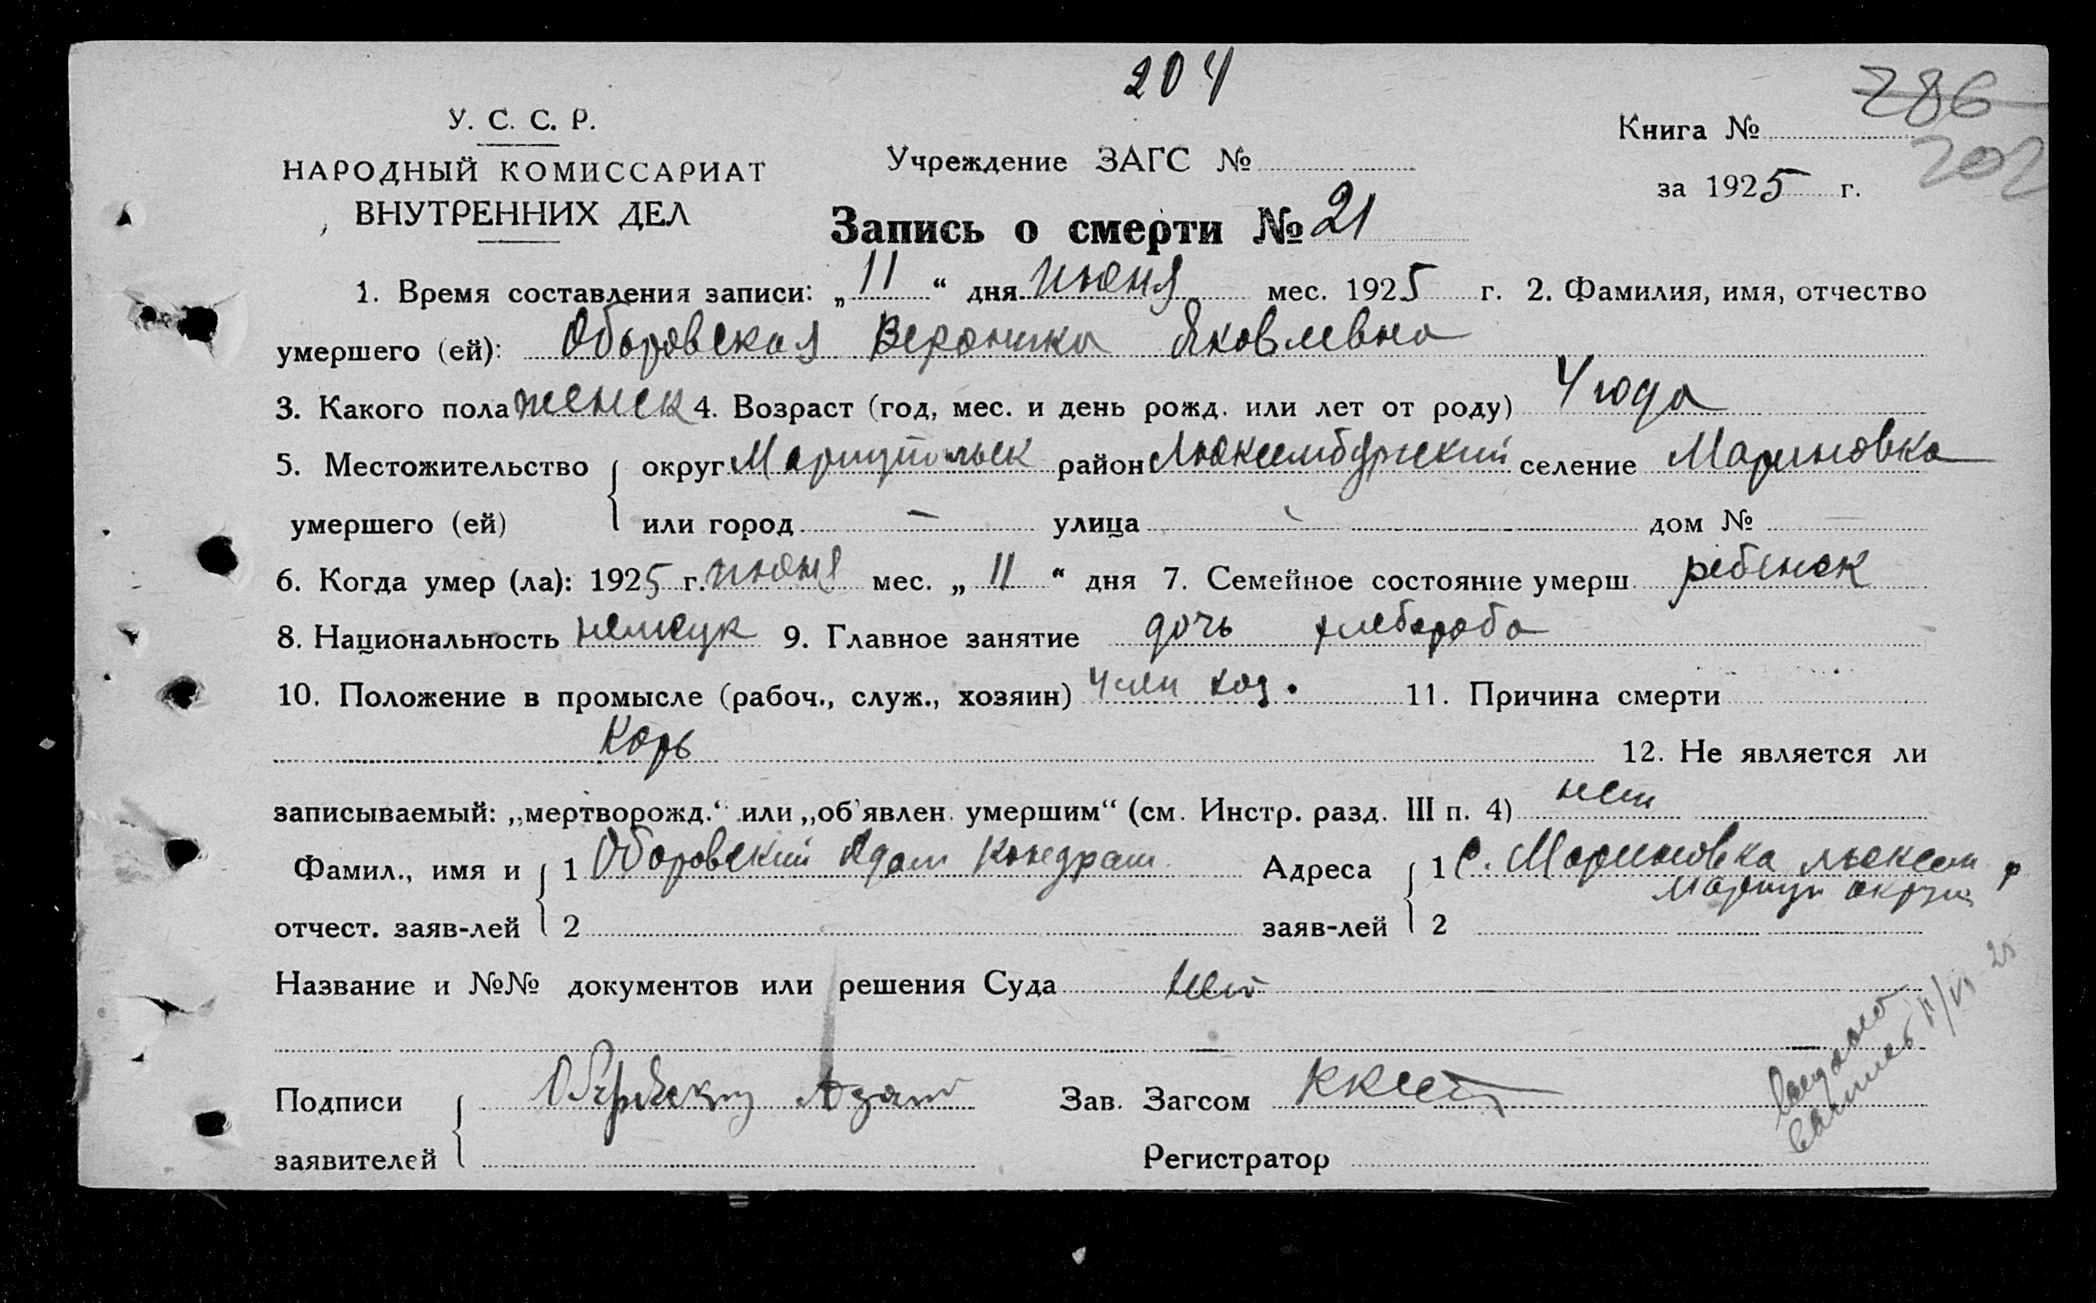 204
286
202
У. С. С. Р.
НАРОДНЫЙ КОМИССАРИАТ
ВНУТРЕННИХ ДЕЛ
Учреждение ЗАГС №
Книга №
за 1925 г.
Запись о смерти № 21
1. Время составления записи: „11“ дня июня мес. 1925 г. 2. Фамилия, имя, отчество
умершего (ей): Оборовская Вероника Яковлевна
3. Какого пола женск 4. Возраст (год, мес. и день рожд. или лет от роду) 4 года
5. Местожительство округ Мариупольск район Люксембургский селение Мариновка
умершего (ей) или город — улица — дом № —
6. Когда умер (ла): 1925 г. июня мес. „11“ дня 7. Семейное состояние умерш. ребенок
8. Национальность немцук 9. Главное занятие дочь хлебороба
10. Положение в промысле (рабоч., служ., хозяин) член хоз. 11. Причина смерти
Корь 12. Не является ли
записываемый: „мертворожд.“ или „об'явлен. умершим“ (см. Инстр. разд. III п. 4) нет
Фамил., имя и 1 Оборовский Адам Кондрат Адреса 1 с. Мариновка люксем р
Мариуп округа
отчест. заяв-лей 2 заяв-лей 2
Название и №№ документов или решения Суда нет
Подписи Адам Зав. Загсом
заявителей Регистратор